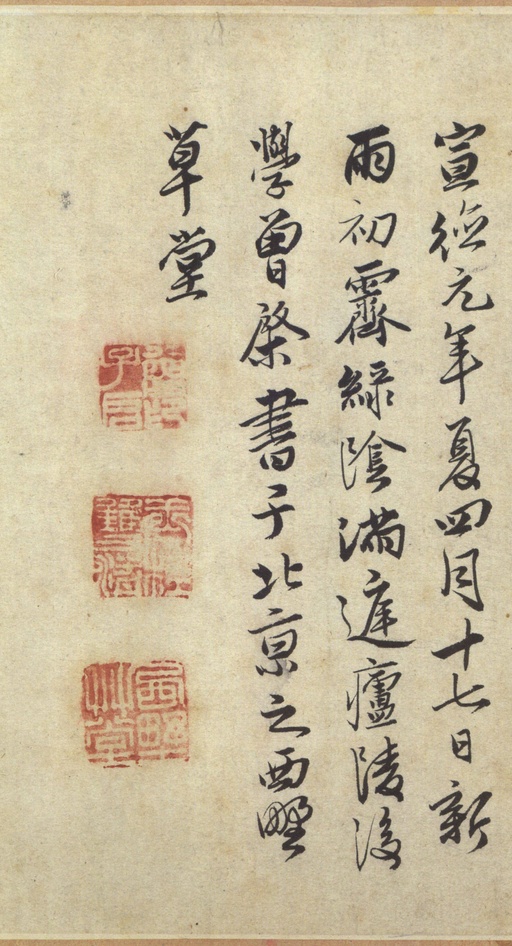 宣德元年夏四月十七日新
雨初霽綠陰滿庭廬陵後
學曾棨書于北京之西墅
草堂
西墅草堂